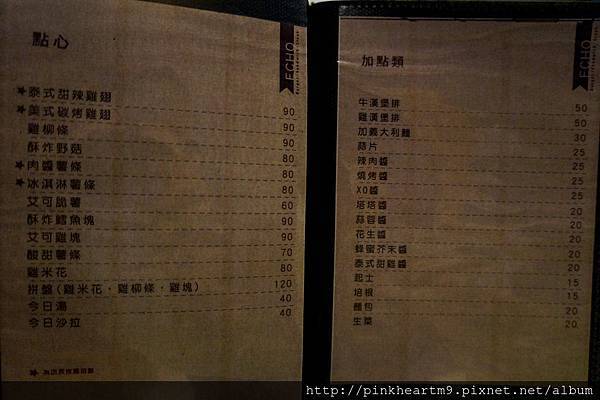 點心
ECHO
★泰式甜辣雞翅 90
★美式碳烤雞翅 90
雞柳條 90
酥炸野菇 80
★肉醬薯條 80
★冰淇淋薯條 80
艾可脆薯 60
酥炸鱈魚塊 90
艾可雞塊 90
酸甜薯條 70
雞米花 80
拼盤(雞米花，雞柳條，雞塊) 120
今日湯 40
今日沙拉 40
加點類
ECHO
牛漢堡排 50
雞漢堡排 50
加義大利麵 30
蒜片 25
辣肉醬 25
燒烤醬 25
XO醬 25
塔塔醬 20
蒜蓉醬 20
花生醬 20
蜂蜜芥末醬 20
泰式甜雞醬 20
起士 15
培根 15
麵包 20
生菜 20
http://pinkheartm9.pixnet.net/album